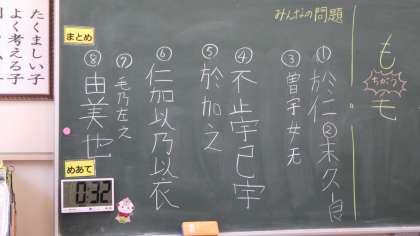 みんなの問題
も
ちがう
モ
①於仁②末久良
③曽宇女无
④不止宇己宇
⑤於加之
⑥仁加以乃以衣
⑦毛乃左之
⑧由美也
まとめ
めあて
0:32
たくましい子
よく考える子